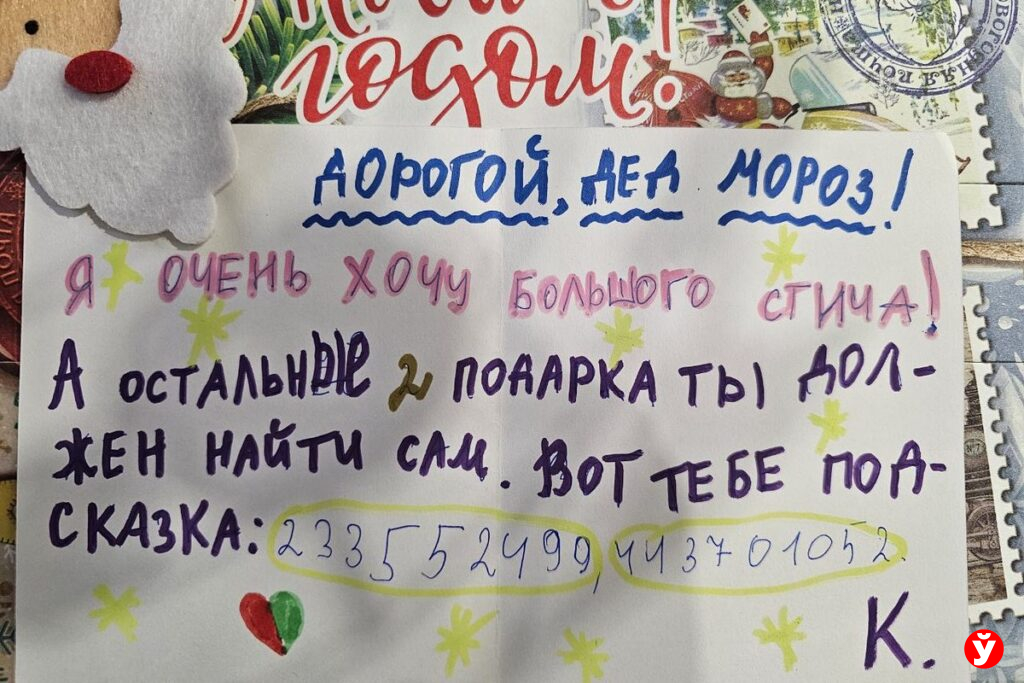 годом!
ДОРОГОЙ, ДЕД МОРОЗ!
Я ОЧЕНЬ ХОЧУ БОЛЬШОГО СТИЧА!
А ОСТАЛЬНЫЕ 2 ПОДАРКА ТЫ ДОЛ-
ЖЕН НАЙТИ САМ. ВОТ ТЕБЕ ПОД-
СКАЗКА: 233552499, 443701052.
К.
ПОЧТА
Ў